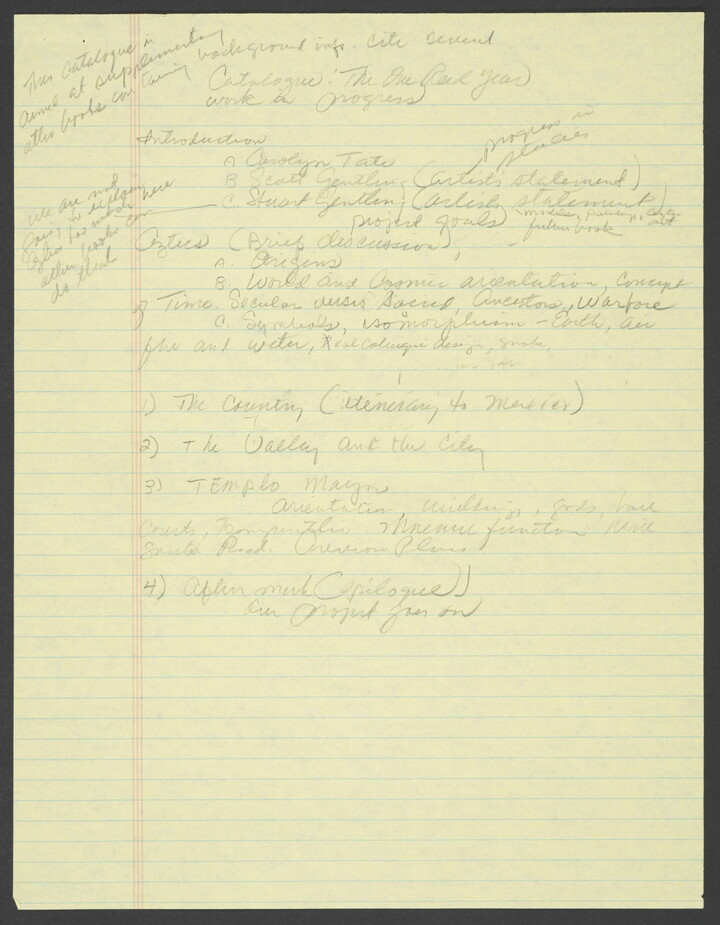 This Catalogue is
aimed at supplimentary
other books containing background info. Cite several
Catalogue: The One Reed Year
work in progress
Introduction
progress in
studies
A Carolyn Tate
B Scott Gentling (artist's statement)
C. Stuart Gentling (artist's statement)
project goals
models, paintings,
future book
We are not
going to explain
Aztec too much here
other books can
do that
Aztecs (Brief discussion)
A. Origins
B. World and Cosmic orientation, Concept
of Time. Secular versus Sacred, Ancestors, Warfare
C. Symbols, isomorphism - Earth, air
fire and water,
1) The Country (itinerary to Mexico)
2) The Valley and the City
3) TEmplo Mayor
Orientation, building, gods, ball
Courts, function
South Road.
4) Aftermath (Epilogue)
Our project goes on